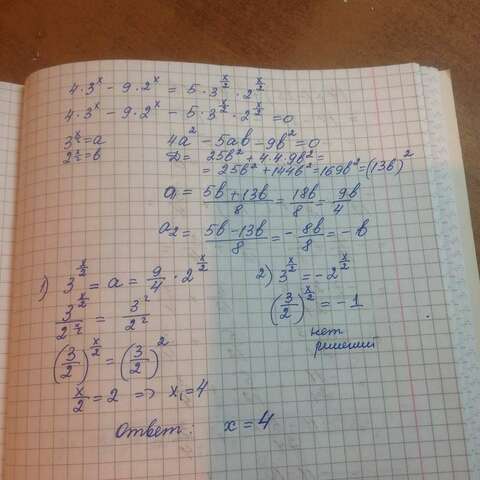 4·3^x − 9·2^x = 5·3^(x/2)·2^(x/2)
4·3^x − 9·2^x − 5·3^(x/2)·2^(x/2) = 0
3^(x/2) = a
2^(x/2) = b
4a² − 5ab − 9b² = 0
D = 25b² + 4·4·9b² =
= 25b² + 144b² = 169b² = (13b)²
a₁ = (5b + 13b)/8 = 18b/8 = 9b/4
a₂ = (5b − 13b)/8 = −8b/8 = −b
1) 3^(x/2) = a = 9/4 · 2^(x/2)
3^(x/2)/2^(x/2) = 3²/2²
(3/2)^(x/2) = (3/2)²
x/2 = 2 => x₁ = 4
2) 3^(x/2) = −2^(x/2)
(3/2)^(x/2) = −1
нет
решений
Ответ: x = 4